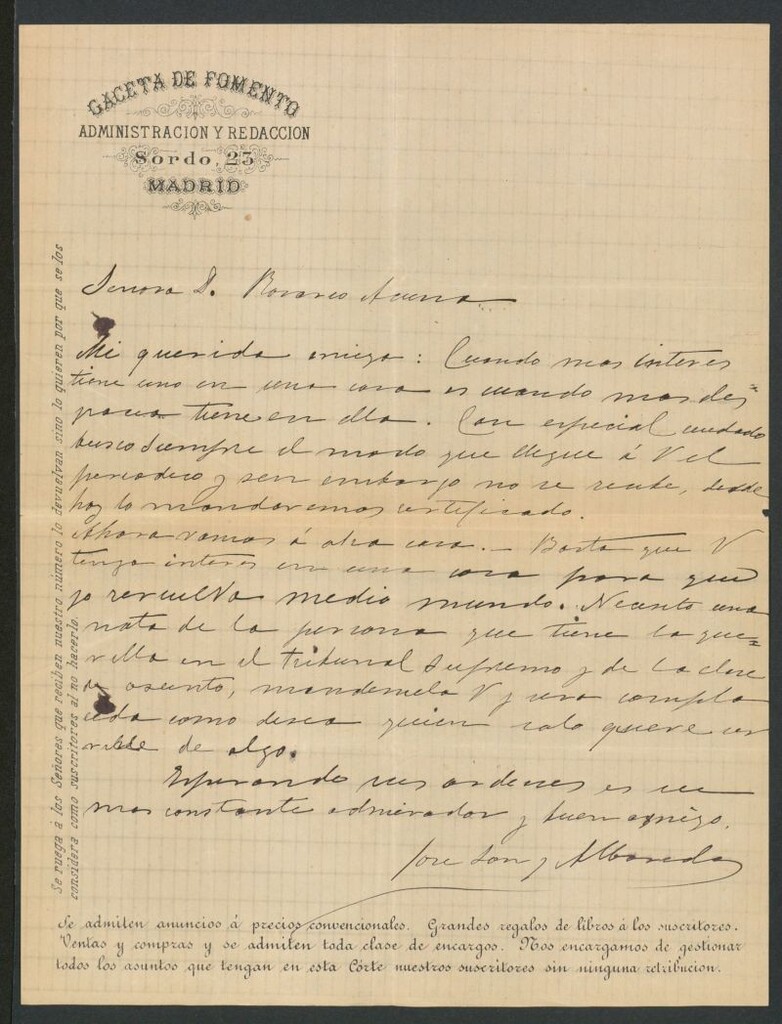 GACETA DE FOMENTO
ADMINISTRACION Y REDACCION
Sordo, 23
MADRID
Señora D. Rosario Acuna
Mi querida amiga: Cuando mas interes
tiene uno en una cosa es cuando mas des=
gracia tiene en ella. Con especial cuidado
busco siempre el modo que llegue á V el
periodico y sin embargo no se recibe, desde
hoy lo mandaremos certificado.
Ahora vamos á otra cosa. — Basta que V
tenga interes en una cosa para que
yo revuelva medio mundo. Necesito una
nota de la persona que tiene la que=
rella en el Tribunal Supremo y de la clase
de asunto, mandemela V y sera compla
cida como desea quien solo quiere ser
virle de algo.
Esperando sus ordenes es su
mas constante admirador y buen amigo.
Jose y Albareda
Se ruega á los Señores que reciben nuestro número lo devuelvan sino lo quieren por que se los
considera como suscritores al no hacerlo.
Se admiten anuncios á precios convencionales. Grandes regalos de libros á los suscritores.
Ventas y compras y se admiten toda clase de encargos. Nos encargamos de gestionar
todos los asuntos que tengan en esta Córte nuestros suscritores sin ninguna retribucion.